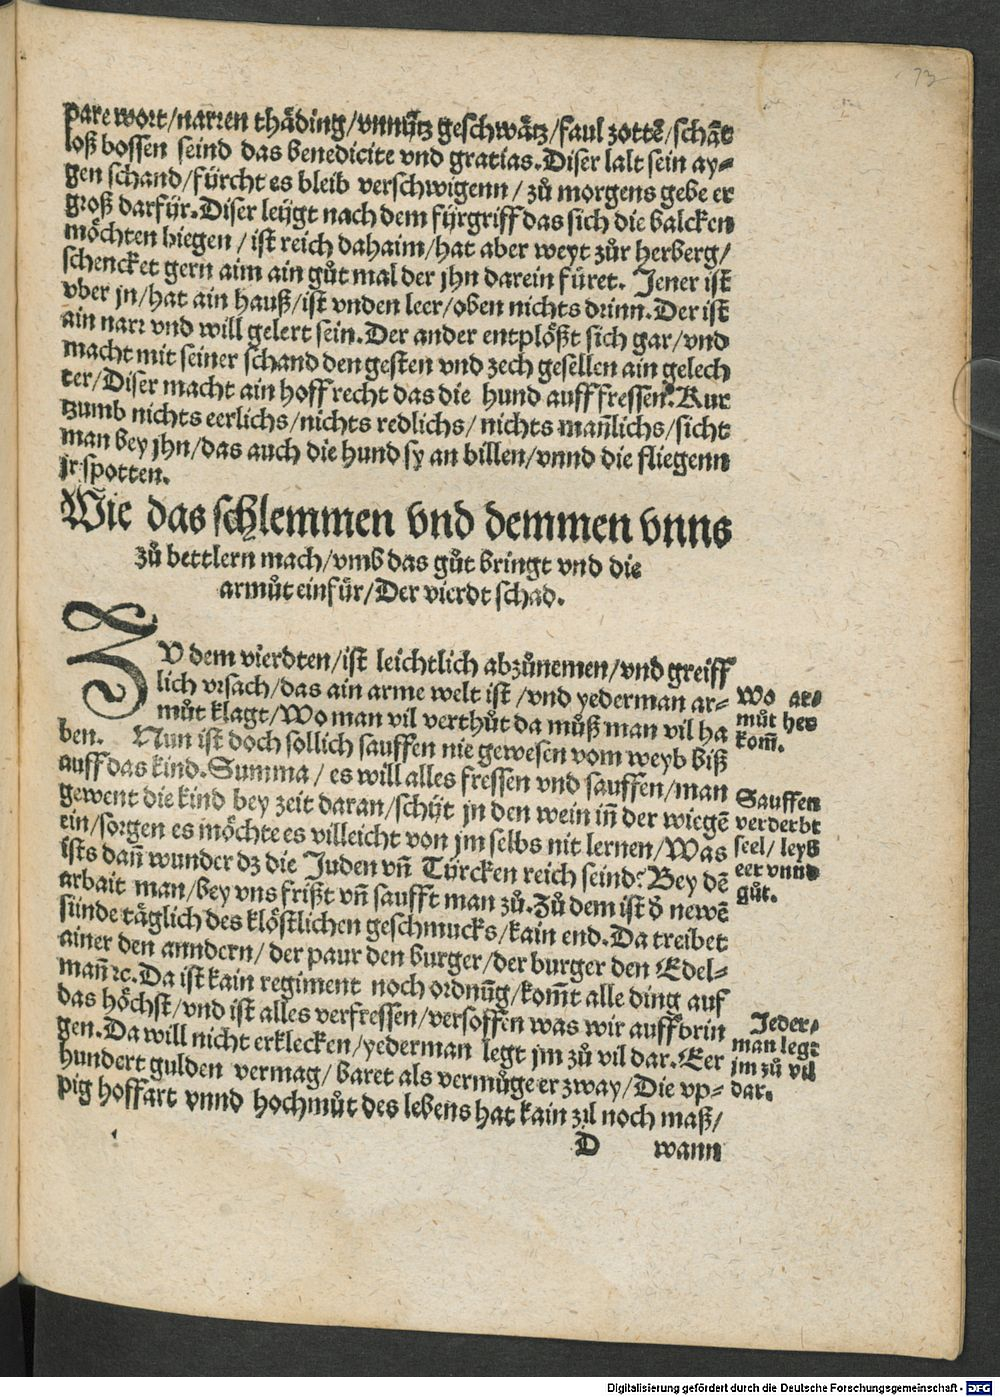 73
pare wort/narren thäding/vnnütz geschwätz/faul zottẽ/schãt
loß bossen seind das benedicite vnd gratias. Diser lalt sein ay-
gen schand/fürcht es bleib verschwigenn/ zů morgens gebe er
groß darfür. Diser leügt nach dem fürgriff das sich die balcken
möchten biegen/ ist reich dahaim/hat aber weyt zůr herberg/
schencket gern aim ain gůt mal der jhn darein füret. Jener ist
vber jn/hat ain hauß/ist vnden leer/oben nichts drinn. Der ist
ain narr vnd will gelert sein. Der ander entplößt sich gar/vnd
macht mit seiner schand den gesten vnd zech gesellen ain gelech
ter/Diser macht ain hoffrecht das die hund auff fressen. Kur
tzumb nichts eerlichs/nichts redlichs/ nichts mañlichs/sicht
man bey jhn/das auch die hund sy an billen/vnnd die fliegenn
jr spotten.
Wie das schlemmen vnd demmen vnns
zů bettlern mach/vmb das gůt bringt vnd die
armůt einfür/Der vierdt schad.
ZV dem vierdten/ist leichtlich abzůnemen/vnd greiff
lich vrsach/das ain arme welt ist/vnd yederman ar-
můt klagt/Wo man vil verthůt da můß man vil ha
ben. Nun ist doch sollich sauffen nie gewesen vom weyb biß
auff das kind. Summa/ es will alles fressen vnd sauffen/man
gewent die kind bey zeit daran/schüt jn den wein iñ der wiegẽ
ein/sorgen es möchte es villeicht von jm selbs nit lernen/Was
ists dañ wunder dz die Juden vñ Türcken reich seind? Bey dẽ
arbait man/bey vns frißt vñ saufft man zů. Zů dem ist ð newẽ
sünde täglich des klöstlichen geschmucks/kain end. Da treibet
ainer den anndern/ der paur den burger/der burger den Edel-
mañ ꝛc. Da ist kain regiment noch ordnũg/kom̃t alle ding auf
das höchst/vnd ist alles verfressen/versoffen was wir auffbrin
gen. Da will nicht erklecken/yederman legt jm zů vil dar. Eer
hundert gulden vermag/ baret als vermůge er zway/Die vp-
pig hoffart vnnd hochmůt des lebens hat kain zil noch maß/
D wann
Wo ar-
můt her
kom̃.
Sauffen
verderbt
seel/ leyb
eer vnnd
gůt.
Jeder-
man legt
jm zů vil
dar.
Digitalisierung gefördert durch die Deutsche Forschungsgemeinschaft - DFG